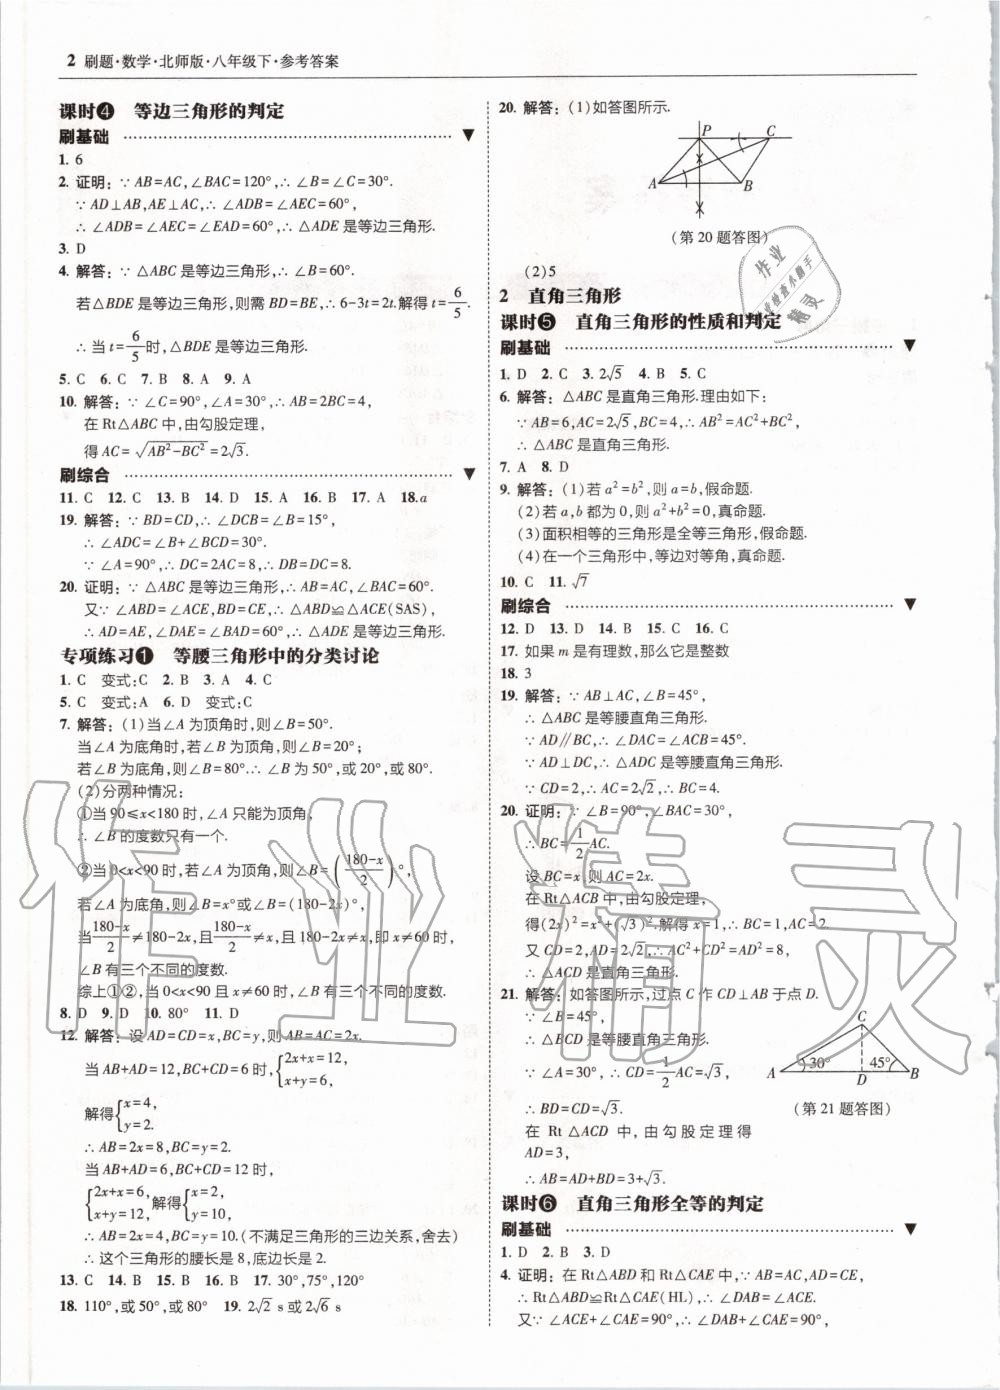 2 刷题·数学·北师版·八年级下·参考答案
课时❹ 等边三角形的判定
刷基础
1. 6
2. 证明:∵AB=AC,∠BAC=120°,∴∠B=∠C=30°.
∵AD⊥AB,AE⊥AC,∴∠ADB=∠AEC=60°,
∴∠ADB=∠AEC=∠EAD=60°,∴△ADE是等边三角形.
3. D
4. 解答:∵△ABC是等边三角形,∴∠B=60°.
若△BDE是等边三角形,则需BD=BE,∴6-3t=2t.解得t=6/5.
∴当t=6/5时,△BDE是等边三角形.
5. C 6. C 7. B 8. A 9. A
10. 解答:∵∠C=90°,∠A=30°,∴AB=2BC=4,
在Rt△ABC中,由勾股定理,
得AC=√(AB²-BC²)=2√3.
刷综合
11. C 12. C 13. B 14. D 15. A 16. B 17. A 18. a
19. 解答:∵BD=CD,∴∠DCB=∠B=15°,
∴∠ADC=∠B+∠BCD=30°.
∵∠A=90°,∴DC=2AC=8,∴DB=DC=8.
20. 证明:∵△ABC是等边三角形,∴AB=AC,∠BAC=60°.
又∵∠ABD=∠ACE,BD=CE,∴△ABD≌△ACE(SAS),
∴AD=AE,∠DAE=∠BAD=60°,∴△ADE是等边三角形.
专项练习❶ 等腰三角形中的分类讨论
1. C 变式:C 2. B 3. A 4. C
5. C 变式:A 6. D 变式:C
7. 解答:(1)当∠A为顶角时,则∠B=50°.
当∠A为底角时,若∠B为顶角,则∠B=20°;
若∠B为底角,则∠B=80°.∴∠B为50°,或20°,或80°.
(2)分两种情况:
①当90≤x<180时,∠A只能为顶角,
∴∠B的度数只有一个.
②当0<x<90时,若∠A为顶角,则∠B=((180-x)/2)°,
若∠A为底角,则∠B=x°或∠B=(180-2x)°,
当(180-x)/2≠180-2x,且(180-x)/2≠x,且180-2x≠x,即x≠60时,
∠B有三个不同的度数.
综上①②,当0<x<90且x≠60时,∠B有三个不同的度数.
8. D 9. D 10. 80° 11. D
12. 解答:设AD=CD=x,BC=y,则AB=AC=2x.
当AB+AD=12,BC+CD=6时,{2x+x=12, x+y=6,
解得{x=4, y=2.
∴AB=2x=8,BC=y=2.
当AB+AD=6,BC+CD=12时,
{2x+x=6, x+y=12,解得{x=2, y=10,
∴AB=2x=4,BC=y=10.(不满足三角形的三边关系,舍去)
∴这个三角形的腰长是8,底边长是2.
13. C 14. B 15. B 16. B 17. 30°,75°,120°
18. 110°,或50°,或80° 19. 2√2 s或2√6 s
20. 解答:(1)如答图所示.
P C
A B
(第20题答图)
(2)5
2 直角三角形
课时❺ 直角三角形的性质和判定
刷基础
1. D 2. C 3. 2√5 4. B 5. C
6. 解答:△ABC是直角三角形.理由如下:
∵AB=6,AC=2√5,BC=4,∴AB²=AC²+BC²,
∴△ABC是直角三角形.
7. A 8. D
9. 解答:(1)若a²=b²,则a=b,假命题.
(2)若a,b都为0,则a²+b²=0,真命题.
(3)面积相等的三角形是全等三角形,假命题.
(4)在一个三角形中,等边对等角,真命题.
10. C 11. √7
刷综合
12. D 13. D 14. B 15. C 16. C
17. 如果m是有理数,那么它是整数
18. 3
19. 解答:∵AB⊥AC,∠B=45°,
∴△ABC是等腰直角三角形.
∵AD∥BC,∴∠DAC=∠ACB=45°.
∵AD⊥DC,∴△ADC是等腰直角三角形.
∵CD=2,∴AC=2√2,∴BC=4.
20. 证明:∵∠B=90°,∠BAC=30°,
∴BC=1/2AC.
设BC=x,则AC=2x.
在Rt△ACB中,由勾股定理,
得(2x)²=x²+(√3)².解得x=1,∴BC=1,AC=2.
又CD=2,AD=2√2,∴AC²+CD²=AD²=8,
∴△ACD是直角三角形.
21. 解答:如答图所示,过点C作CD⊥AB于点D.
∵∠B=45°,
∴△BCD是等腰直角三角形.
∵∠A=30°,∴CD=1/2AC=√3,
∴BD=CD=√3.
在Rt△ACD中,由勾股定理得
AD=3,
∴AB=AD+BD=3+√3.
C
30° 45°
A D B
(第21题答图)
课时❻ 直角三角形全等的判定
刷基础
1. D 2. B 3. D
4. 证明:在Rt△ABD和Rt△CAE中,∵AB=AC,AD=CE,
∴Rt△ABD≌Rt△CAE(HL),∴∠DAB=∠ACE.
又∵∠ACE+∠CAE=90°,∴∠DAB+∠CAE=90°,
作业精灵
作业
精灵